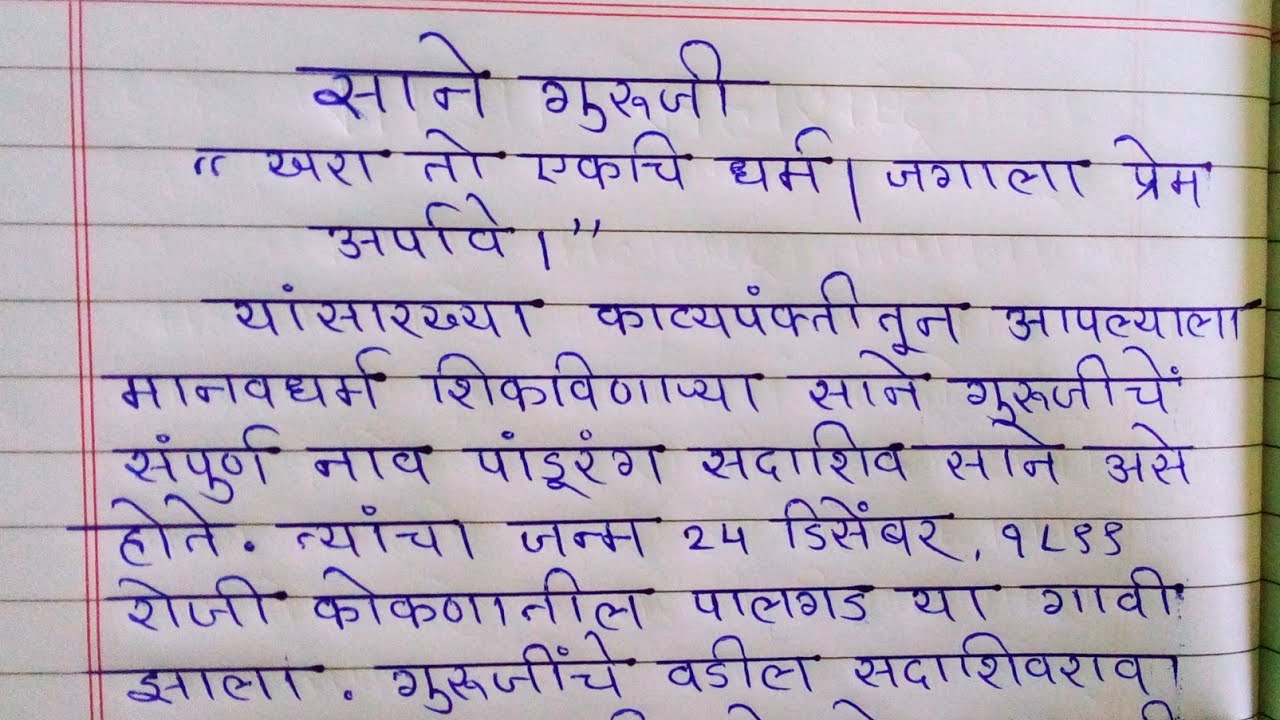 साने गुरुजी
“ खरा तो एकचि धर्म। जगाला प्रेम
अर्पावे।”
यांसारख्या काव्यपंक्तीतून आपल्याला
मानवधर्म शिकविणाऱ्या साने गूरूजीचें
संपुर्ण नाव पांडूरंग सदाशिव साने असे
होते. त्यांचा जन्म २४ डिसेंबर, १८९९
रोजी कोकणातील पालगड या गावी
झाला. गुरूजींचे वडील सदाशिवराव